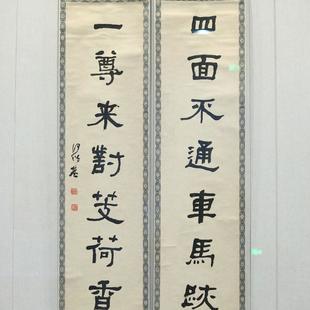 四面不通車馬跡
一尊来對芰荷香